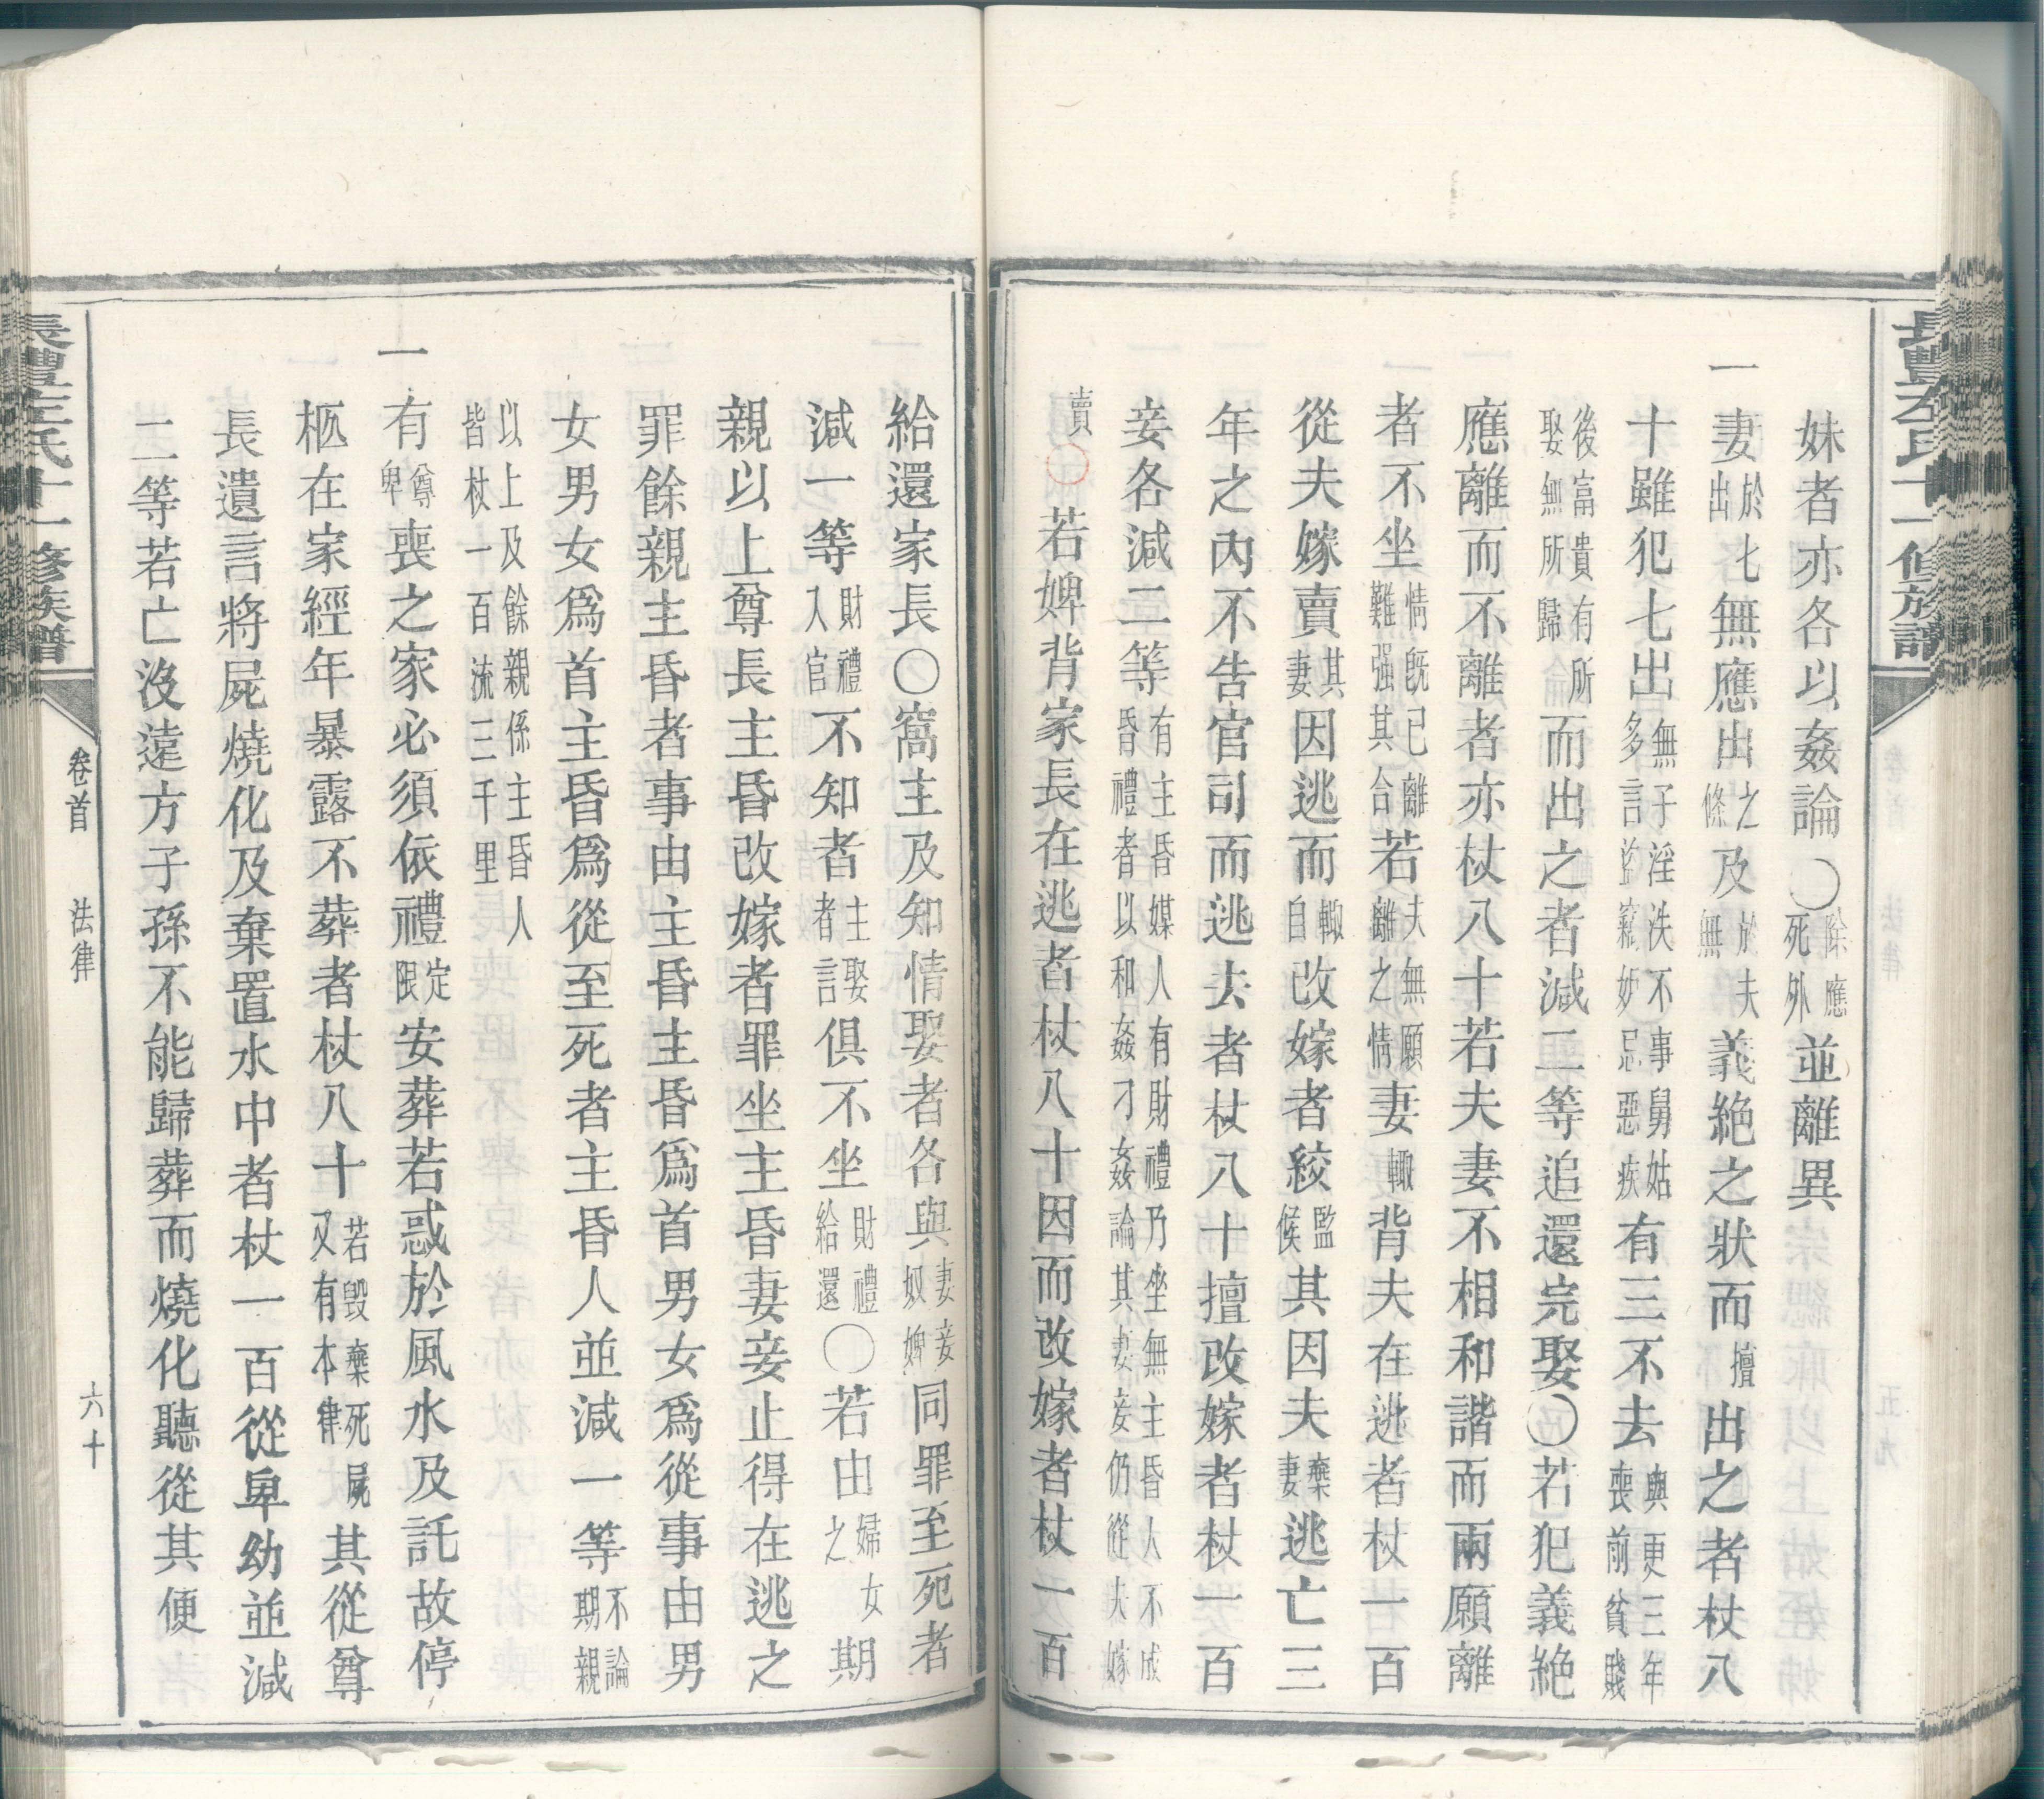 長豐左氏十一修族譜
妹者亦各以姦論〇除應死外並離異
一妻於七出無應出之條及於夫無義絕之狀而擅出之者杖八
十雖犯七出無子淫泆不事舅姑多言盜竊妒忌惡疾有三不去與更三年喪前貧賤
後富貴有所娶無所歸而出之者減二等追還完娶〇若犯義絕
應離而不離者亦杖八十若夫妻不相和諧而兩願離
者不坐情既已離難强其合若夫無願離之情妻輙背夫在逃者杖一百
從夫嫁賣其妻因逃而輙自改嫁者絞監候其因夫棄妻逃亡三
年之內不告官司而逃去者杖八十擅改嫁者杖一百
妾各減二等有主昏媒人有財禮乃坐無主昏人不成昏禮者以和姦刁姦論其妻妾仍從夫嫁
賣〇若婢背家長在逃者杖八十因而改嫁者杖一百
給還家長〇窩主及知情娶者各與妻妾奴婢同罪至死者
減一等財禮入官不知者主娶者言俱不坐財禮給還〇若由婦女之期
親以上尊長主昏改嫁者罪坐主昏妻妾止得在逃之
罪餘親主昏者事由主昏主昏爲首男女爲從事由男
女男女爲首主昏爲從至死者主昏人並減一等不論期親
以上及餘親係主昏人皆杖一百流三千里
一有尊卑喪之家必須依禮定限安葬若惑於風水及託故停
柩在家經年暴露不葬者杖八十若毀棄死屍又有本律其從尊
長遺言將屍燒化及棄置水中者杖一百從卑幼並減
二等若亡沒遠方子孫不能歸葬而燒化聽從其便
長豐左氏十一修族譜
卷首
法律
六十